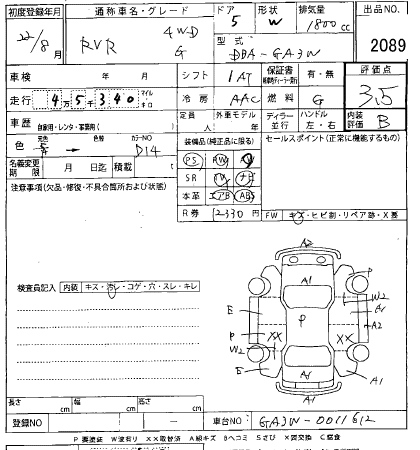 初度登録年月 通称車名・グレード ドア 形状 排気量 出品NO.
22/8月 RVR 4WD G 5 W 1800cc 2089
型式 DBA-GA3W
車検 年 月 シフト 1AT 保証書 有・無 評価点
走行 4万5千340 マイル キロ 冷房 AAC 燃料 G 3.5
車歴 自家用・レンタ・事業用( ) 定員 人 外車モデル 年 ディーラー 並行 ハンドル 左・右 内装評価 B
色 元色 → 色替 カラーNO D14 装備品(純正品に限る) セールスポイント(正常に機能するもの)
名義変更期限 月 日迄 積載 PS PW
注意事項(欠品・修復・不具合箇所および状態) SR TV ナビ
本革 エアB ABS
R券 12330 FW キズ・ヒビ割・リペア跡・X要
検査員記入 内装 キズ・汚レ・コゲ・穴・スレ・キレ
A2
A1 P
W2
E A1
P A2
P XX XX
W2
E A1 A1
長さ cm 幅 cm 高さ cm
登録NO 車台NO. GA3W-0011612
P 要塗装 W波有り XX取替済 A線キズ Bヘコミ Sさび X要交換 C腐食